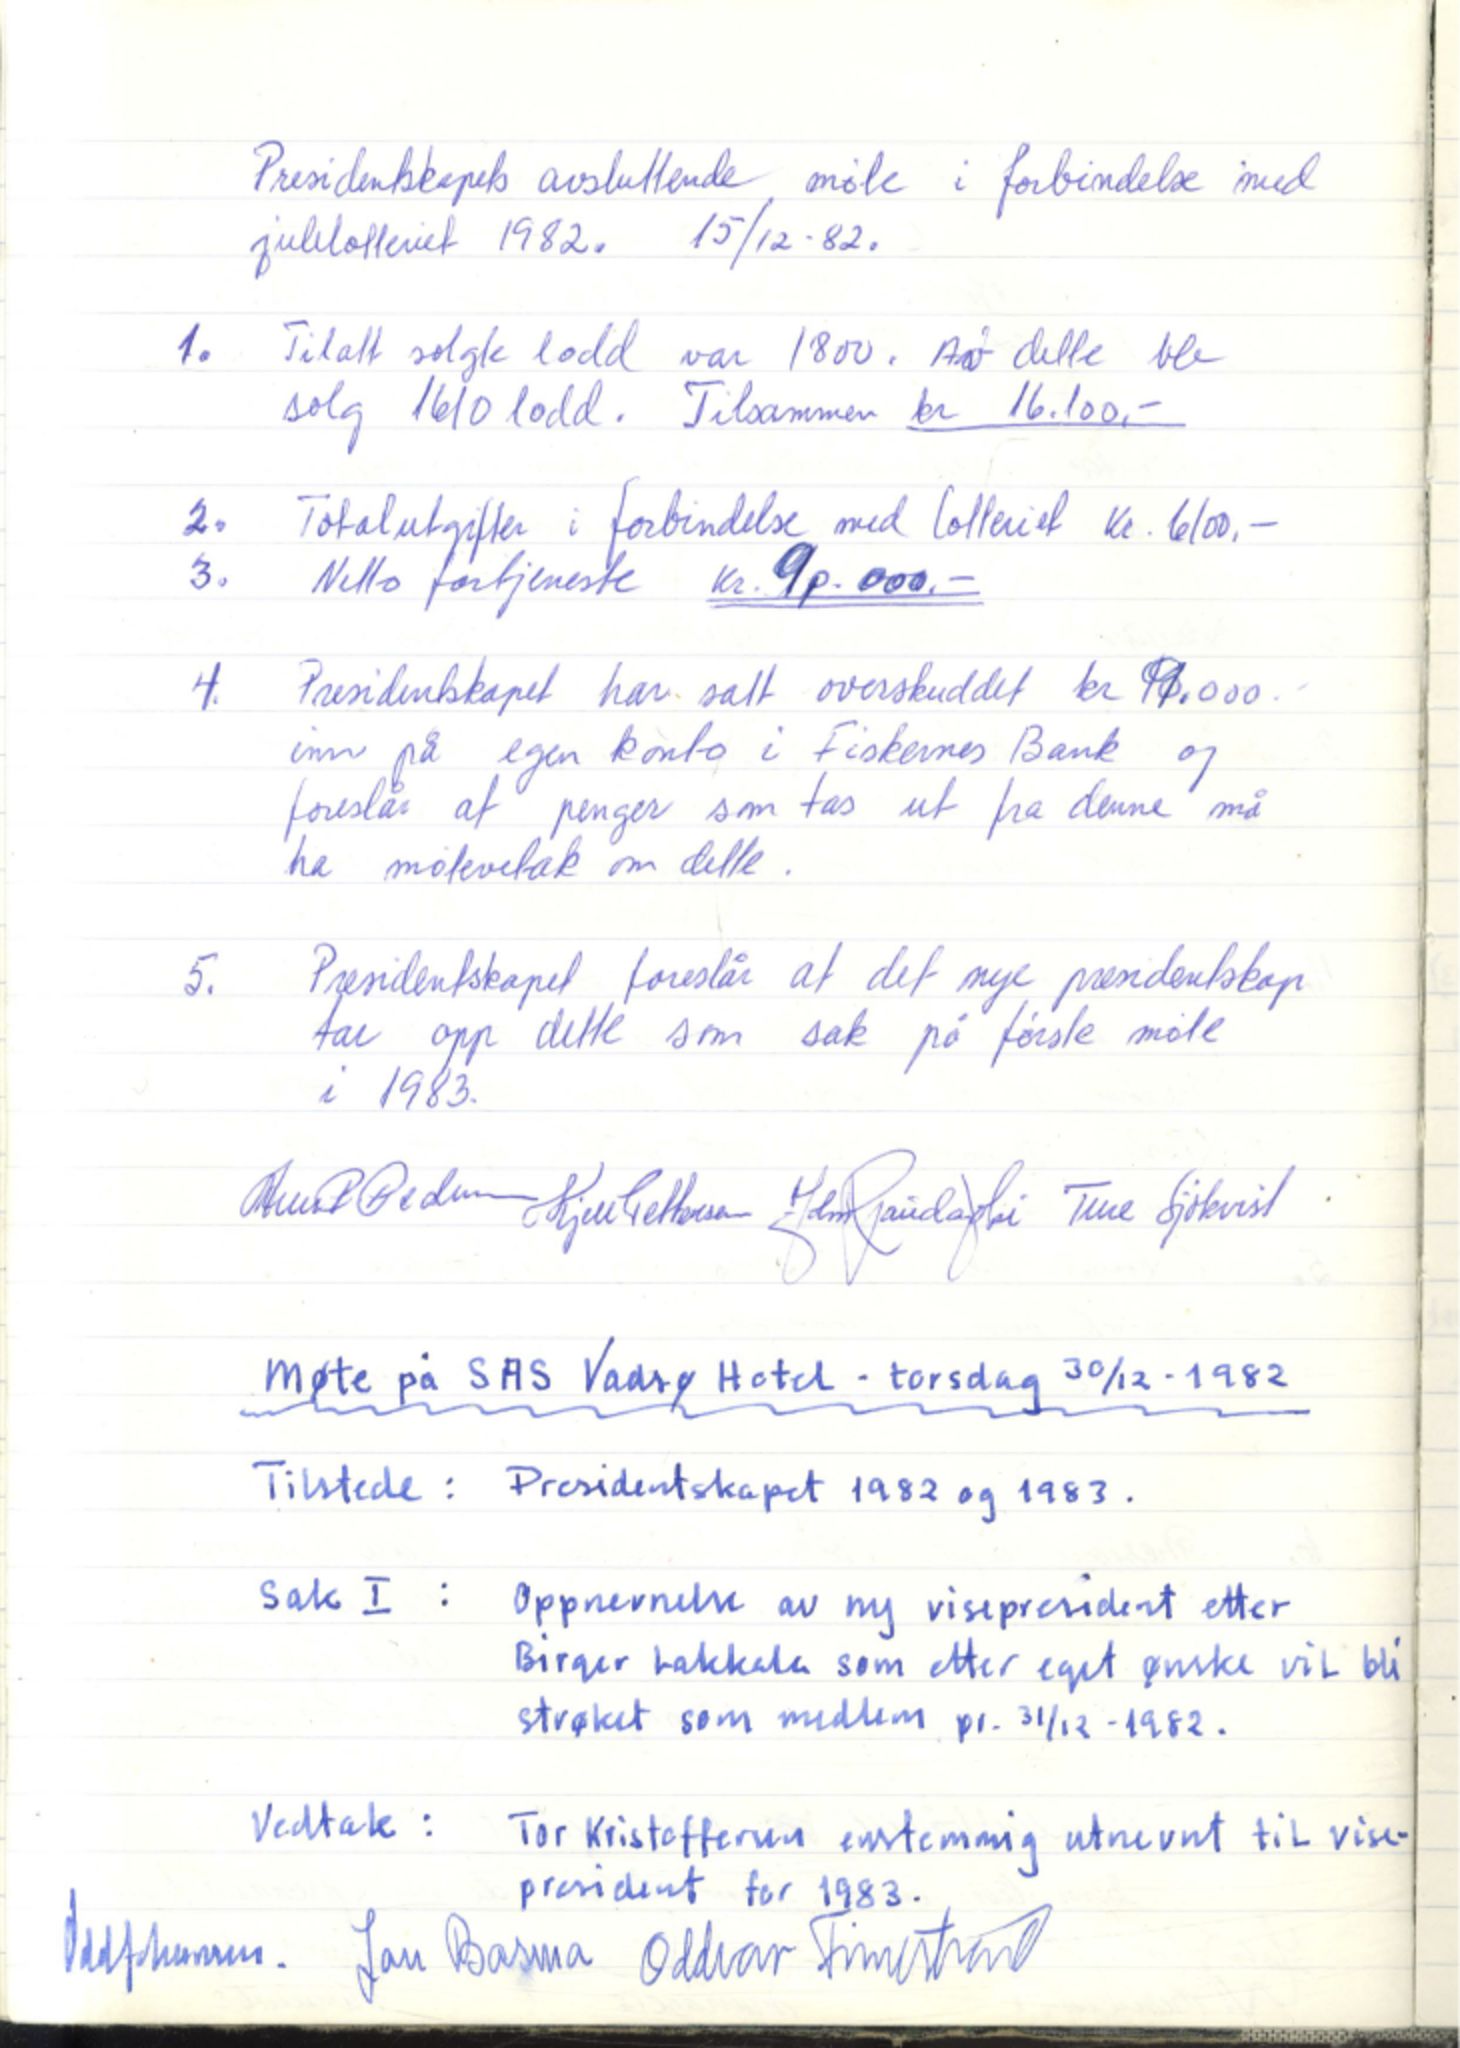 Presidentskapets avsluttende møte i forbindelse med
julelotteriet 1982. 15/12-82.
1. Tilatt solgte lodd var 1800. Av dette ble
solg 1610 lodd. Tilsammen kr 16.100,-
2. Totalutgifter i forbindelse med lotteriet kr. 6100,-
3. Netto fortjeneste kr. 9.000.-
4. Presidentskapet har satt overskuddet kr 9.000.-
inn på egen konto i Fiskernes Bank og
foreslår at penger som tas ut fra denne må
ha møtevetak om dette.
5. Presidentskapet foreslår at det nye presidentskap
tar opp dette som sak på første møte
i 1983.
Kjell Pettersen Ture Sjökvist
Møte på SAS Vadsø Hotel - torsdag 30/12-1982
Tilstede: Presidentskapet 1982 og 1983.
Sak I : Oppnevnelse av ny visepresident etter
Birger Lakkala som etter eget ønske vil bli
strøket som medlem pr. 31/12-1982.
Vedtak: Tor Kristoffersen enstemmig utnevnt til vise-
president for 1983.
Odd Johannsen. Jan Basma Oddvar